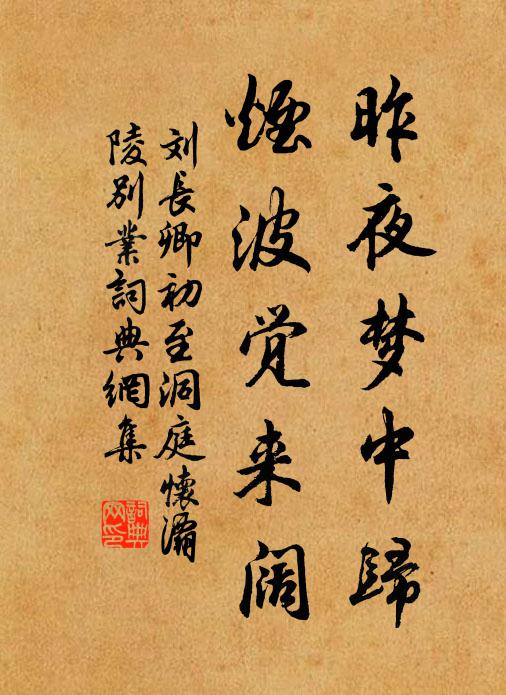 昨夜梦中歸
煙波觉来阔
刘長卿初至洞庭懷灞
陵别業詞典網集
詞典
网印